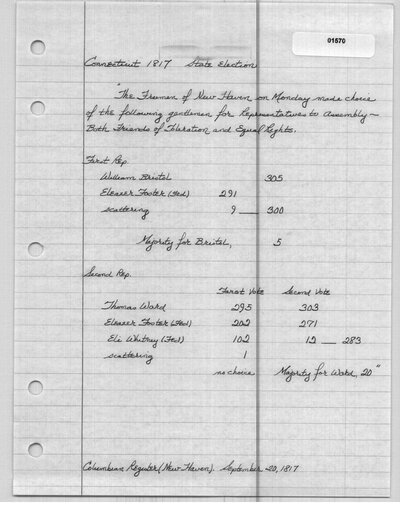 01570
Connecticut 1817 State Election
"The Freemen of New Haven on Monday made choice
of the following gentlemen for Representatives to Assembly ~
Both Friends of Toleration and Equal Rights.
First Rep.
William Bristol 305
Eleazer Foster (Fed) 291
scattering 9 — 300
Majority for Bristol, 5
Second Rep.
First Vote Second Vote
Thomas Ward 295 303
Eleazer Foster (Fed) 202 271
Eli Whitney (Fed) 102 12 — 283
scattering 1
no choice Majority for Ward, 20"
Columbian Register (New Haven). September 20, 1817